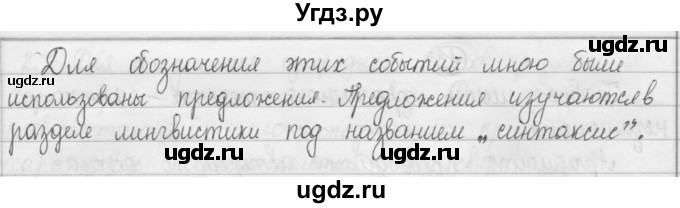 Угдз.ру
Для обозначения этих событий мною были
использованы предложения. Предложения изучаются в
разделе лингвистики под названием „синтаксис".
ugdz.ru ugdz.ru ugdz.ru
ugdz.ru ugdz.ru
ugdz.ru ugdz.ru ugdz.ru